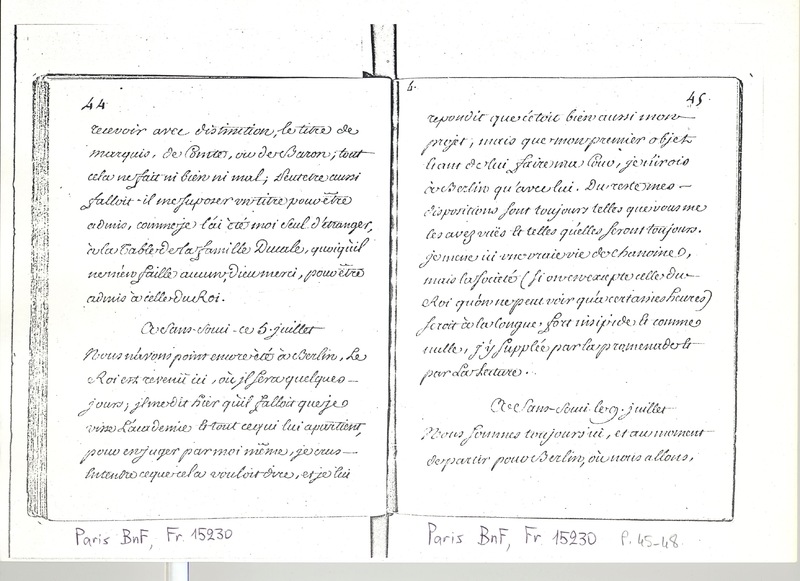 44.
recevoir avec distinction, le titre de
marquis, de Comte, ou de Baron; tout
cela ne fait ni bien ni mal; Peutetre aussi
falloit-il me suposer un titre pour être
admis, comme je l'ai été moi seul d'étranger,
à la Table de la famille Ducale, quoiqu'il
ne m'en faille aucun, dieu merci, pour être
admis à celle du Roi.
A Sans-Souci - ce 5. juillet
Nous n'avons point encore été à Berlin, Le
Roi est revenu ici, où il sera quelques -
jours; il me dit hier qu'il falloit que je
visse L'academie & tout ce qui lui apartient,
pour en juger par moi même, je crus -
entendre ce que cela vouloit dire, et je lui
6.
45.
repondit que c'étoit bien aussi mon
projet; mais que mon premier objet
étant de lui faire ma Cour, je n'irois
à Berlin qu'avec lui. Du reste mes -
dispositions sont toujours telles que vous me
les avez vuës & telles qu'elles seront toujours.
je mene ici une vraie vie de chanoine,
mais la societé (si on en excepte celle du
Roi qu'on ne peut voir qu'a certaines heures)
seroit à la longue, fort insipide & comme
nulle, j'y supplée par la promenade &
par La Lecture.
A Sans-Souci le 9. juillet
Nous sommes toujours ici, et au moment
de partir pour Berlin, où nous allons,
Paris BnF, Fr. 15230
Paris BnF, Fr. 15230 p. 45-48